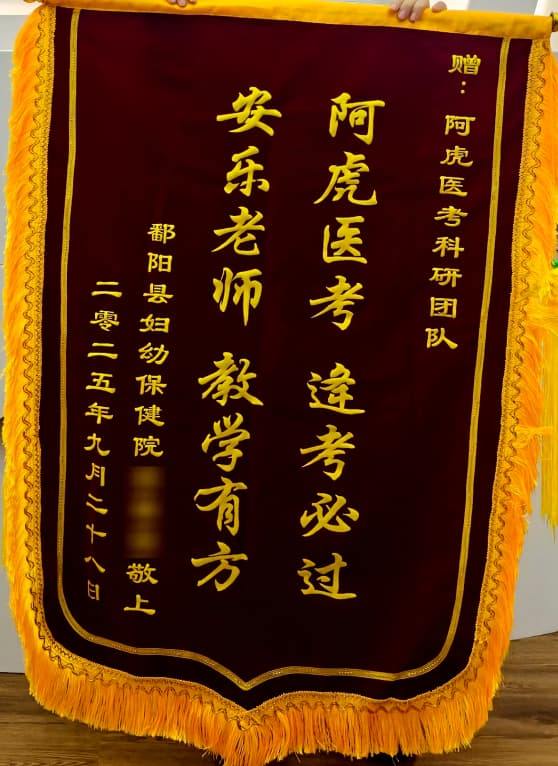 赠：阿虎医考科研团队
阿虎医考 逢考必过
安乐老师 教学有方
鄱阳县妇幼保健院 敬上
二零二五年九月二十八日